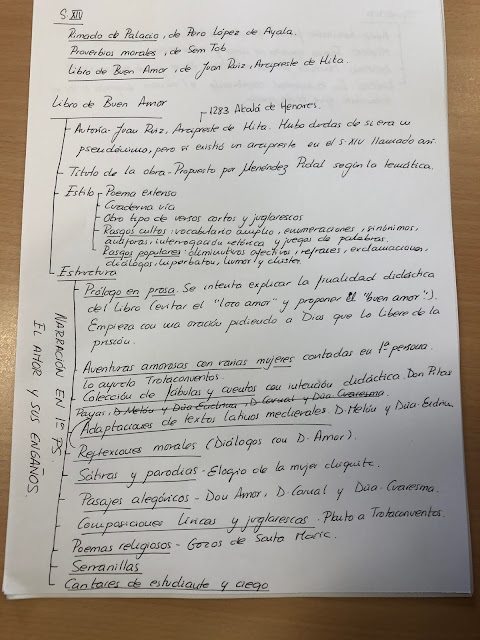 S. XIV
Rimado de Palacio, de Pero López de Ayala.
Proverbios morales, de Sem Tob
Libro de Buen Amor, de Juan Ruiz, Arcipreste de Hita.
Libro de Buen Amor
1283 Alcalá de Henares.
Autoría - Juan Ruiz, Arcipreste de Hita. Hubo dudas de si era un
pseudónimo, pero sí existió un arcipreste en el S. XIV llamado así.
Título de la obra - Propuesto por Menéndez Pidal según la temática.
Estilo
Poema extenso
Cuaderna vía
Otro tipo de versos cortos y juglarescos
Rasgos cultos: vocabulario amplio, enumeraciones, sinónimos,
anáforas, interrogación retórica y juegos de palabras.
Rasgos populares: diminutivos afectivos, refranes, exclamaciones,
diálogos, hipérbaton, humor y chistes.
Estructura
Prólogo en prosa. Se intenta explicar la finalidad didáctica
del libro (evitar el "loco amor" y proponer el "buen amor").
Empieza con una oración pidiendo a Dios que lo libere de la
prisión.
Aventuras amorosas con varias mujeres contadas en 1ª persona.
Lo ayuda Trotaconventos.
Colección de fábulas y cuentos con intención didáctica. Don Pitas
Payas, D. Melón y Dña Endrina, D. Carnal y Dña. Cuaresma.
Adaptaciones de textos latinos medievales. D. Melón y Dña. Endrina.
Reflexiones morales (Diálogos con D. Amor).
Sátiras y parodias - Elogio de la mujer chiquita.
Pasajes alegóricos - Don Amor, D. Carnal y Dña. Cuaresma.
Composiciones líricas y juglarescas. Planto a Trotaconventos.
Poemas religiosos - Gozos de Santa María.
Serranillas
Cantares de estudiante y ciego
NARRACIÓN EN 1ª PS.
EL AMOR Y SUS ENGAÑOS.